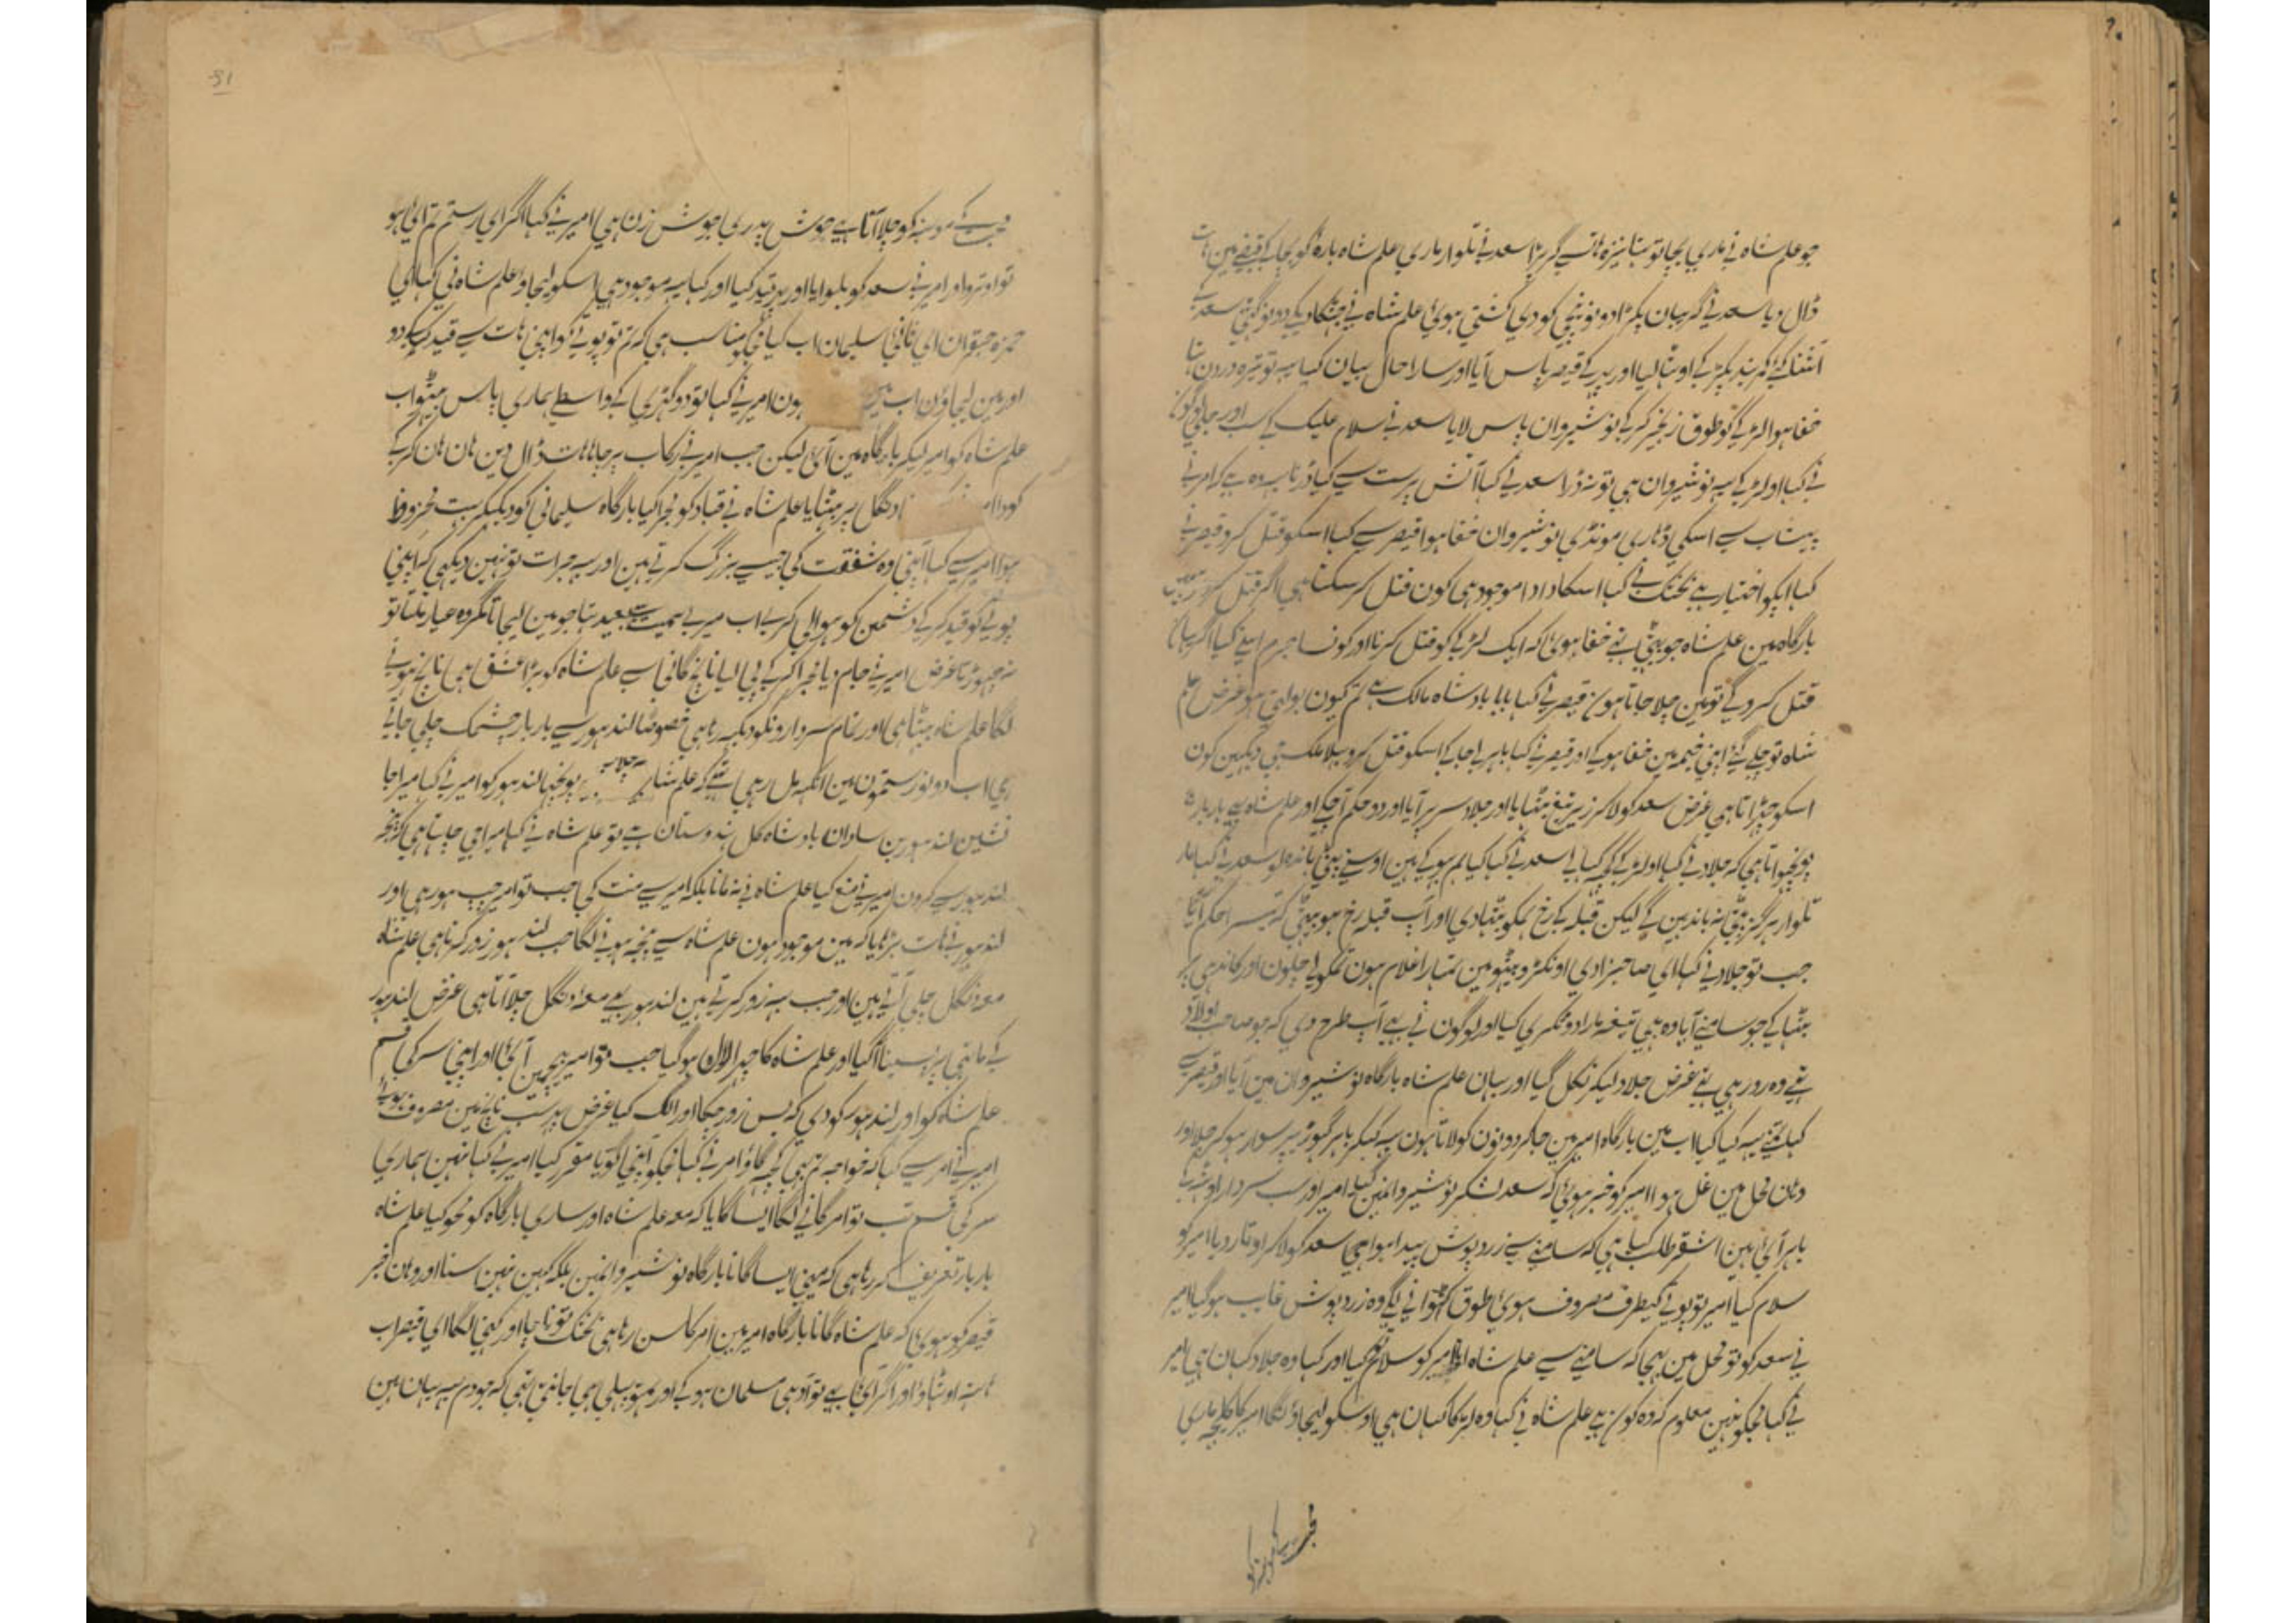 جو علم شاہ نے ماری بچا تو بتا نیزہ ہات سے گر پڑا سعد نے تلوار ماری علم شاہ بارہ کو بچا کے قبضے مین ہات
ڈال دیا سعد نے گریبان پکڑا دونو نیچی کودی کشتی ہوئی علم شاہ نے جھٹکا دیکے دونو
کمر بند پکڑ کے اوٹھا لیا اور قیصر پاس آیا اور سارا حال بیان کیا
خفا ہوا لڑکے کو طوق زنجیر کر کے نوشیروان پاس لایا سعد نے سلام علیک
نے کہا او لڑکے یہ نوشیروان ہی تو نہ ڈرا سعد نے کہا آتش پرست سے کیا ڈرنا یہ وہ ہے کہ امر نے
پیشاب سے اسکی ڈاری مونڈی نوشیروان خفا ہوا قیصر سے کہا اسکو قتل کرو قیصر نے
کہا اپکو اختیار ہے بختک نے کہا اسکا دادا موجود ہی کون قتل کر سکتا ہی اگر قتل کرو
بارگاہ مین علم شاہ جو بیٹھی تہے خفا ہوئی کہ ایک لڑکے کو قتل کرنا اور کونسا جرم اسنے کیا اگر
قتل کرو گے تو مین چلا جاتا ہون قیصر نے کہا بابا بادشاہ مالک ہے تم کیون بولتی ہو غرض علم
شاہ تو چلے گئے اپنی خیمہ مین خفا ہو کے اور قیصر نے کہا باہر لے جا کے اسکو قتل کرو بہلا دیکہین کون
اسکو چھڑاتا ہی غرض سعد کو لا کر زیر تیغ بٹھایا اور جلاد سر پر آیا اور دو حکم آ چکے اور علم شاہ بھی بار بار
پوچھواتا ہی کہ جلاد نے کہا او لڑکے کچہ کہا لے سعد نے کہا کیا ہم بہوکے ہین اوسنے پٹی باندہ لو سعد نے کہا مار
تلوار ہرگز پٹی نہ باندہین گے لیکن قبلہ کے رخ ہمکو بٹھا دی اور آپ قبلہ رخ ہو بیٹھی کہ تیسرا حکم آیا
جب تو جلاد نے کہا ای صاحبزادی اونکڑو بیٹھو مین تمہارا غلام ہون تمکو لے چلون اور کاندہی پر
بٹھا کے جو سامنے آیا وہ ہی تیغہ مارا دو ٹکڑی کیا اور لوگون نے بہی آپ طرح دی کہ جو صاحب اولاد
تہے وہ رو رہی تہے غرض جلاد لیکر نکل گیا اور یہان علم شاہ بارگاہ نوشیروان مین آیا اور قیصر سے
کہا تمنے یہ کیا کیا اب مین بارگاہ امیر مین جا کر دونون کو لاتا ہون یہ کہکر باہر گہوڑی پر سوار ہو کر چلا اور
وہان محل مین غل ہوا امیر کو خبر ہوئی کہ سعد لشکر نوشیروانمین گیا امیر اور سب سردار
باہر آئی ہین اشقر طلب کیا ہی کہ سامنے سے زرد پوش پیدا ہوا ہی سعد کو لا کر اوتار دیا امیر کو
سلام کیا امیر تو پوتے کیطرف مصروف ہوئی طوق کٹوانے لگے وہ زرد پوش غایب ہو گیا امیر
نے سعد کو تو محل مین بہیجا کہ سامنے سے علم شاہ آیا امیر کو سلام کیا اور کہا وہ جلاد کہان ہی امیر
نے کہا مجکو نہین معلوم کہ وہ کون ہے علم شاہ نے کہا وہ لڑکا کہان ہی اوسکو لیجاؤنگا امیر کا کلیجہ ماری
محبت کے
31
محبت کے مونہہ کو چلا آتا ہے جوش پدری جوش زن ہی امیر نے کہا اگر ای رستم تم آئی ہو
تو اوترو اور امیر نے سعد کو بلوایا اور پہر قید کیا اور کہا یہ موجود ہی اسکو لیجاؤ علم شاہ نی کہا ای
حمزہ صاحبقران ای ثانی سلیمان اب کیا مجہے مناسب ہی کہ تم تو پوتے کو اپنی ہات سے قید کر کے دو
اور مین لیجاؤن اب ہون امیر نے کہا تو دو گہڑی کے واسطے ہماری پاس بیٹھو اب
علم شاہ کو امیر لیکر بارگاہ مین آئی لیکن جب امیر نے رکاب پر چاہا ہات ڈال دین ہان ہان کر کے
کودا دنگل پر بٹھایا علم شاہ نے قباد کو مجرا کیا بارگاہ سلیمانی کو دیکہکر بہت محظوظ
ہوا امیر سے کہا آپنی وہ شفقت کی جیسے بزرگ کرتے ہین اور یہ جرات تو نہین دیکہی کہ اپنی
پوتے کو قید کر کے دشمن کو حوالی کرے اب میرے ہمت سے بعید تہا جو مین لیجاتا مگر وہ عیار ملتا تو
نہ چھوڑتا غرض امیر نے جام دیا مجرا کر کے پی لیا ناچ گانی سے علم شاہ کو بڑا عشق ہی ناچ ہونے
لگا علم شاہ بیٹھا ہی اور تمام سردارونکو دیکہ رہا ہی خصوصا لندہور سے بار بار چشمک چلی جاتی
ہی اب دونو رستمون مین آنکہہ مل رہی تہے کہ علم شاہ پوچھا لندہور کو امیر نے کہا میرا جا
نشین لندہور بن سادان بادشاہ کل ہندوستان ہے تو علم شاہ نے کہا میرا جی چاہتا ہی کہ پنجہ
لندہور سے کرون امیر نے منع کیا علم شاہ نے نہ مانا بلکہ امیر سے منت کی جب تو امیر چپ ہو رہی اور
لندہور نے ہات بڑہایا کہ مین موجود ہون علم شاہ سے پنجہ ہونے لگا جب لندہور زور کرتا ہی علم شاہ
معہ دنگل چلی آتے ہین اور جب یہ زور کرتے ہین لندہور بہی معہ دنگل چلا آتا ہی غرض لندہور
کے ماتہی پر پسینا آ گیا اور علم شاہ کا چہرا لال ہو گیا جب تو امیر بیچ مین آئی اور اپنی سر کی قسم
علم شاہ کو اور لندہور کو دی کہ بس زور ہو چکا اور الگ کیا غرض پہر سب ناچ مین مصروف ہوئے
امیر نے امر سے کہا کہ خواجہ تم بہی کچہہ گاؤ امر نے کہا مجکو اپنی گویا مقرر کیا امیر نے کہا نہین ہماری
سر کی قسم تب تو امر گانے لگا ایسا گایا کہ معہ علم شاہ اور ساری بارگاہ کو محو کیا علم شاہ
بار بار تعریف کر رہا ہی کہ مینی ایسا گانا بارگاہ نوشیروانمین بلکہ کہین نہین سنا اور وہان خبر
قیصر کو ہوئی کہ علم شاہ گانا بارگاہ امیر مین امر کا سن رہا ہی بختک تو ناچا اور کہنی لگا ای قیصر اب
ہات اوٹھاؤ اور اگر آئے تو آدہی مسلمان ہو کے اور ہم تو پہلی ہی جانتی تہی کہ جو دم یہ یہان ہین